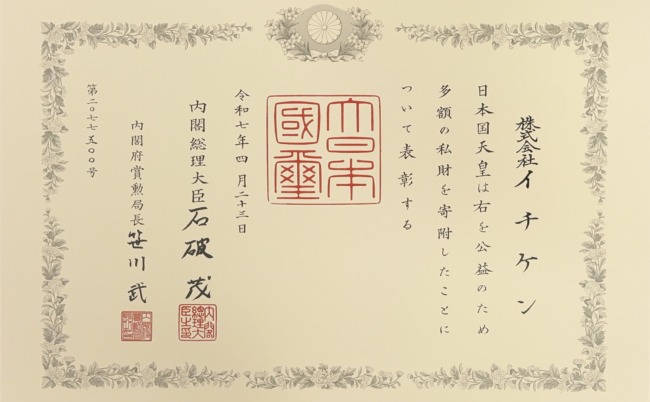 株式会社イチケン
日本国天皇は右を公益のため
多額の私財を寄附したことに
ついて表彰する
大日本
國璽
令和七年四月二十三日
内閣総理大臣石破茂
内閣総理大
臣之印
内閣府賞勲局長笹川武
第二〇七七五〇〇号